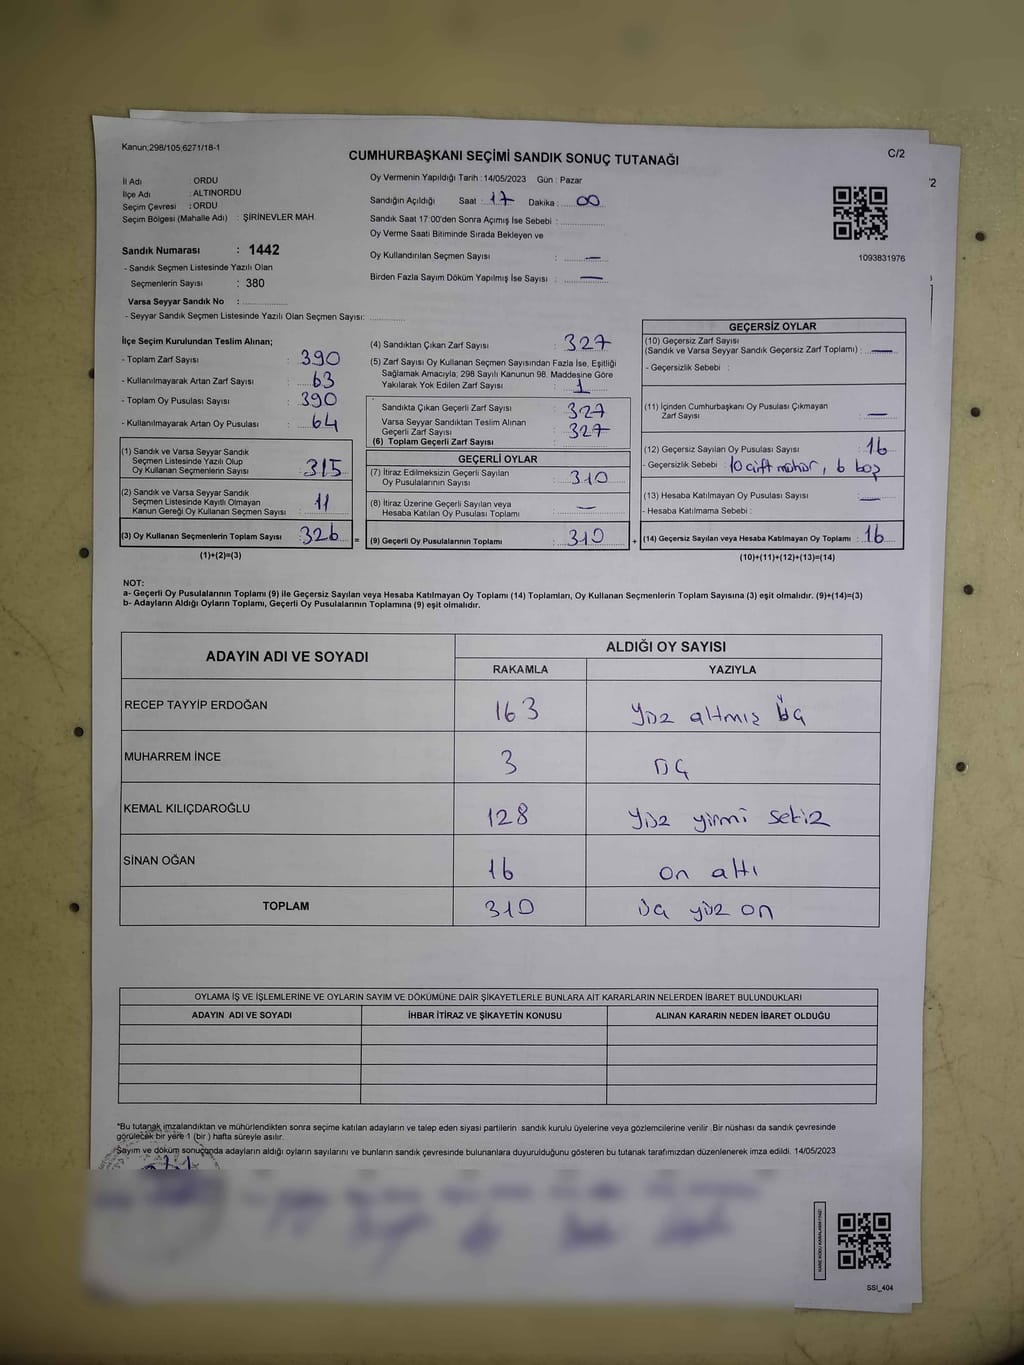 Kanun;298/105;6271/18-1
CUMHURBAŞKANI SEÇİMİ SANDIK SONUÇ TUTANAĞI
C/2
İl Adı : ORDU
İlçe Adı : ALTINORDU
Seçim Çevresi : ORDU
Seçim Bölgesi (Mahalle Adı) : ŞİRİNEVLER MAH.
Sandık Numarası : 1442
- Sandık Seçmen Listesinde Yazılı Olan
Seçmenlerin Sayısı : 380
Varsa Seyyar Sandık No :
- Seyyar Sandık Seçmen Listesinde Yazılı Olan Seçmen Sayısı:
Oy Vermenin Yapıldığı Tarih : 14/05/2023 Gün : Pazar
Sandığın Açıldığı Saat : 17 Dakika : 00
Sandık Saat 17:00'den Sonra Açımış İse Sebebi :
Oy Verme Saati Bitiminde Sırada Bekleyen ve
Oy Kullandırılan Seçmen Sayısı : —
Birden Fazla Sayım Döküm Yapılmış İse Sayısı : —
1093831976
'2
İlçe Seçim Kurulundan Teslim Alınan;
- Toplam Zarf Sayısı : 390
- Kullanılmayarak Artan Zarf Sayısı : 63
- Toplam Oy Pusulası Sayısı : 390
- Kullanılmayarak Artan Oy Pusulası : 64
(1) Sandık ve Varsa Seyyar Sandık
Seçmen Listesinde Yazılı Olup
Oy Kullanan Seçmenlerin Sayısı : 315
(2) Sandık ve Varsa Seyyar Sandık
Seçmen Listesinde Kayıtlı Olmayan
Kanun Gereği Oy Kullanan Seçmen Sayısı : 11
(3) Oy Kullanan Seçmenlerin Toplam Sayısı : 326 =
(1)+(2)=(3)
(4) Sandıktan Çıkan Zarf Sayısı : 327
(5) Zarf Sayısı Oy Kullanan Seçmen Sayısından Fazla İse, Eşitliği
Sağlamak Amacıyla; 298 Sayılı Kanunun 98. Maddesine Göre
Yakılarak Yok Edilen Zarf Sayısı : 1
Sandıkta Çıkan Geçerli Zarf Sayısı : 327
Varsa Seyyar Sandıktan Teslim Alınan
Geçerli Zarf Sayısı : 327
(6) Toplam Geçerli Zarf Sayısı :
GEÇERLİ OYLAR
(7) İtiraz Edilmeksizin Geçerli Sayılan
Oy Pusulalarının Sayısı : 310
(8) İtiraz Üzerine Geçerli Sayılan veya
Hesaba Katılan Oy Pusulası Toplamı : —
(9) Geçerli Oy Pusulalarının Toplamı : 310 +
GEÇERSİZ OYLAR
(10) Geçersiz Zarf Sayısı
(Sandık ve Varsa Seyyar Sandık Geçersiz Zarf Toplamı) : —
- Geçersizlik Sebebi :
(11) İçinden Cumhurbaşkanı Oy Pusulası Çıkmayan
Zarf Sayısı : —
(12) Geçersiz Sayılan Oy Pusulası Sayısı : 16
- Geçersizlik Sebebi : 10 çift mühür, 6 boş
(13) Hesaba Katılmayan Oy Pusulası Sayısı : —
- Hesaba Katılmama Sebebi :
(14) Geçersiz Sayılan veya Hesaba Katılmayan Oy Toplamı : 16
(10)+(11)+(12)+(13)=(14)
NOT:
a- Geçerli Oy Pusulalarının Toplamı (9) ile Geçersiz Sayılan veya Hesaba Katılmayan Oy Toplamı (14) Toplamları, Oy Kullanan Seçmenlerin Toplam Sayısına (3) eşit olmalıdır. (9)+(14)=(3)
b- Adayların Aldığı Oyların Toplamı, Geçerli Oy Pusulalarının Toplamına (9) eşit olmalıdır.
ADAYIN ADI VE SOYADI
ALDIĞI OY SAYISI
RAKAMLA YAZIYLA
RECEP TAYYİP ERDOĞAN 163 Yüz altmış üç
MUHARREM İNCE 3 üç
KEMAL KILIÇDAROĞLU 128 Yüz yirmi sekiz
SİNAN OĞAN 16 on altı
TOPLAM 310 üç yüz on
OYLAMA İŞ VE İŞLEMLERİNE VE OYLARIN SAYIM VE DÖKÜMÜNE DAİR ŞİKAYETLERLE BUNLARA AİT KARARLARIN NELERDEN İBARET BULUNDUKLARI
ADAYIN ADI VE SOYADI İHBAR İTİRAZ VE ŞİKAYETİN KONUSU ALINAN KARARIN NEDEN İBARET OLDUĞU
*Bu tutanak imzalandıktan ve mühürlendikten sonra seçime katılan adayların ve talep eden siyasi partilerin sandık kurulu üyelerine veya gözlemcilerine verilir. Bir nüshası da sandık çevresinde
görülecek bir yere 1 (bir) hafta süreyle asılır.
*Sayım ve döküm sonuçunda adayların aldığı oyların sayılarını ve bunların sandık çevresinde bulunanlara duyurulduğunu gösteren bu tutanak tarafımızdan düzenlenerek imza edildi. 14/05/2023
SSI_404